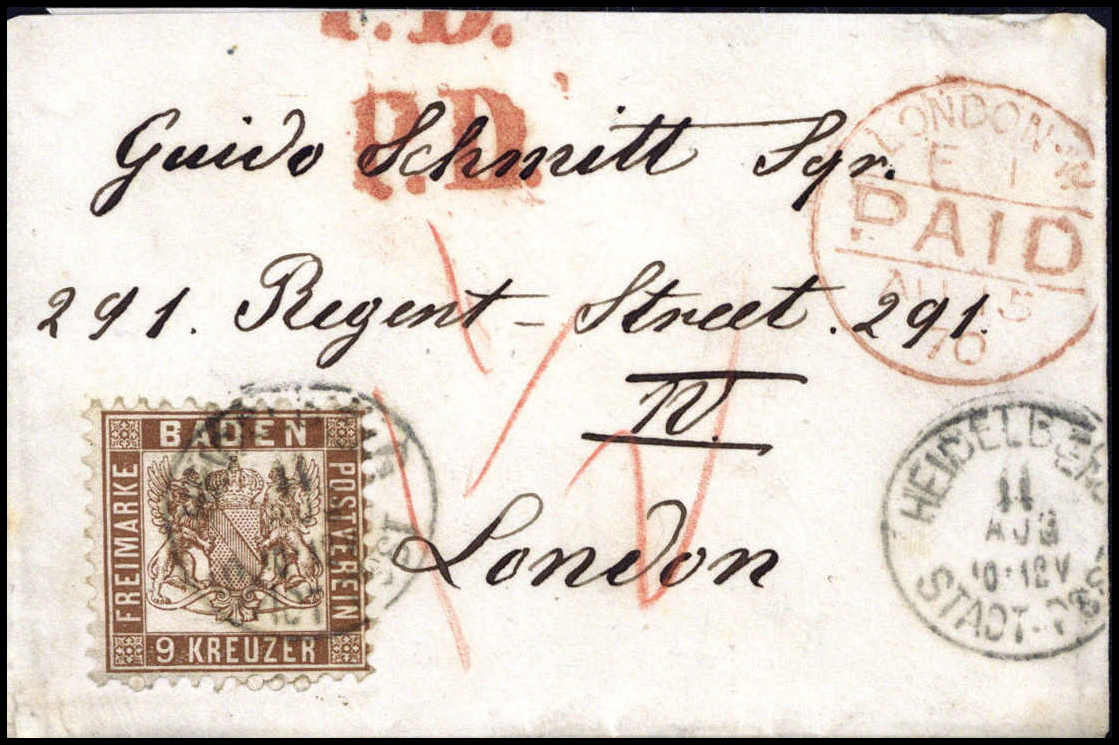 P.D.
P.D.
Guido Schmitt Sqr.
291. Regent-Street. 291.
W.
London
LONDON
E 1
PAID
AU 15
70
BADEN
FREIMARKE
POSTVEREIN
9 KREUZER
11
HEIDELBERG
11
AUG
10-12V
STADT-P